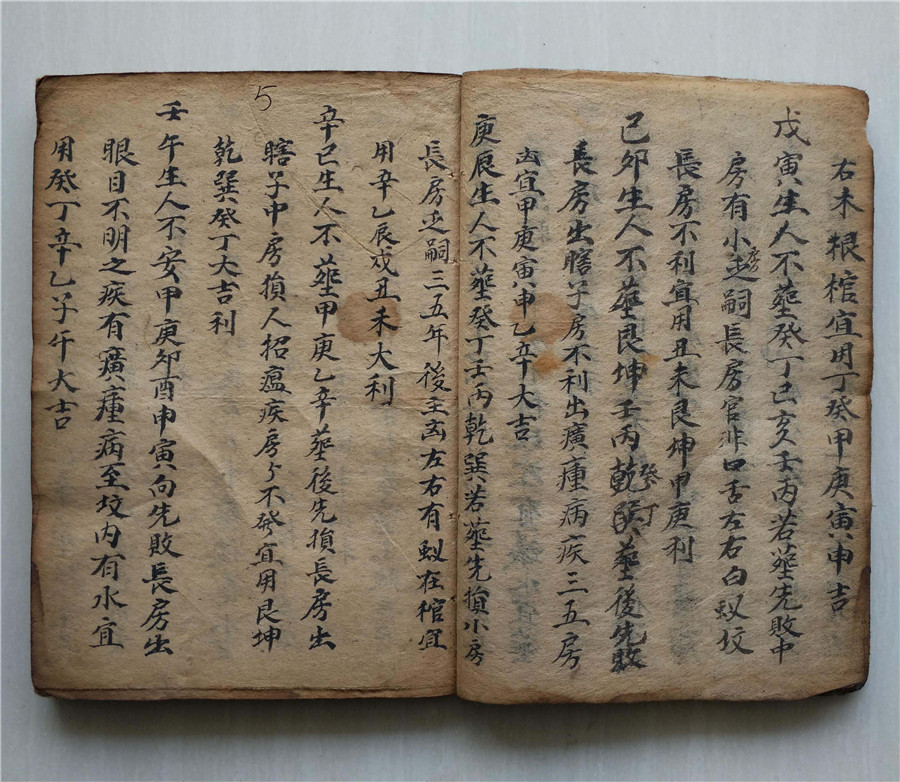 右木根棺宜用丁癸甲庚寅申吉
戊寅生人不塟癸丁巳亥壬丙若塟先敗中
房有小房乏嗣長房官非口舌左右白蚁坟
長房不利宜用丑未艮坤甲庚利
己卯生人不塟艮坤壬丙乾巽癸丁塟後先敗
長房出瞎子房不利出癀瘇病疾三五房
凶宜甲庚寅申乙辛大吉
庚辰生人不塟癸丁壬丙乾巽若塟先損小房
長房乏嗣三五年後主凶左右有蚁在棺宜
用辛乙辰戌丑未大利
辛巳生人不塟甲庚乙辛塟後先損長房出
瞎子中房損人招瘟疾房ク不發宜用艮坤
乾巽癸丁大吉利
5
壬午生人不安甲庚卯酉申寅向先敗長房出
眼目不明之疾有癀瘇病至坟内有水宜
用癸丁辛乙子午大吉